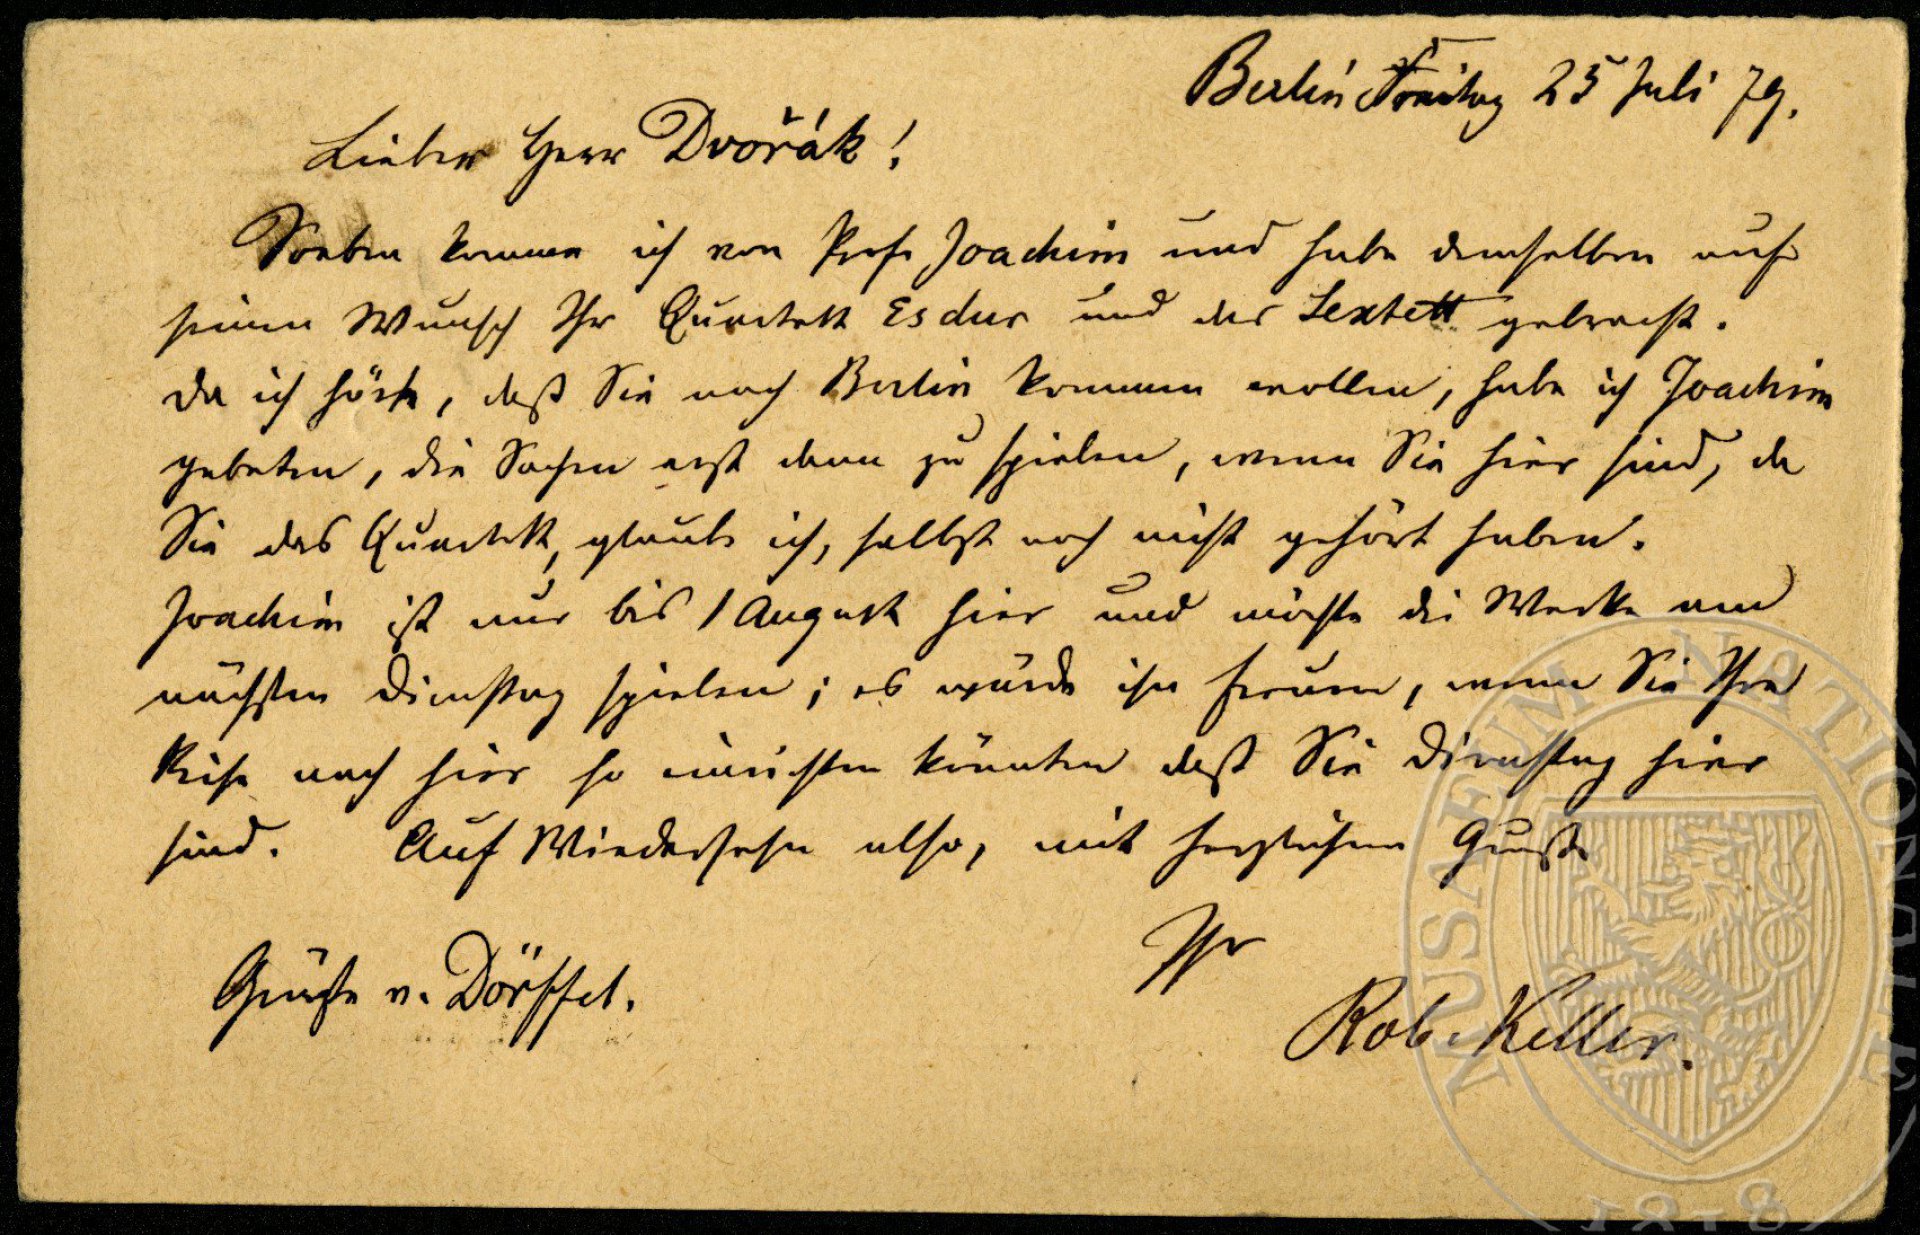 Berlin Freitag 25 Juli 79.
Lieber Herr Dvořák!
Soeben komme ich von Prof. Joachim und habe demselben auf
seinen Wunsch Ihr Quartett Es dur und das Sextett gebracht.
Da ich hörte, daß Sie nach Berlin kommen wollen, habe ich Joachim
gebeten, die Sachen erst dann zu spielen, wenn Sie hier sind, da
Sie das Quartett, glaube ich, selbst noch nicht gehört haben.
Joachim ist nur bis 1 August hier und möchte die Werke am
nächsten Dienstag spielen; es würde ihn freuen, wenn Sie Ihre
Reise nach hier so einrichten könnten daß Sie Dienstag hier
sind. Auf Wiedersehn also, mit herzlichem Gruße
Ihr
Grüße v. Dörffel.
Rob. Keller.
MUSAEUM NATIONALE
1818